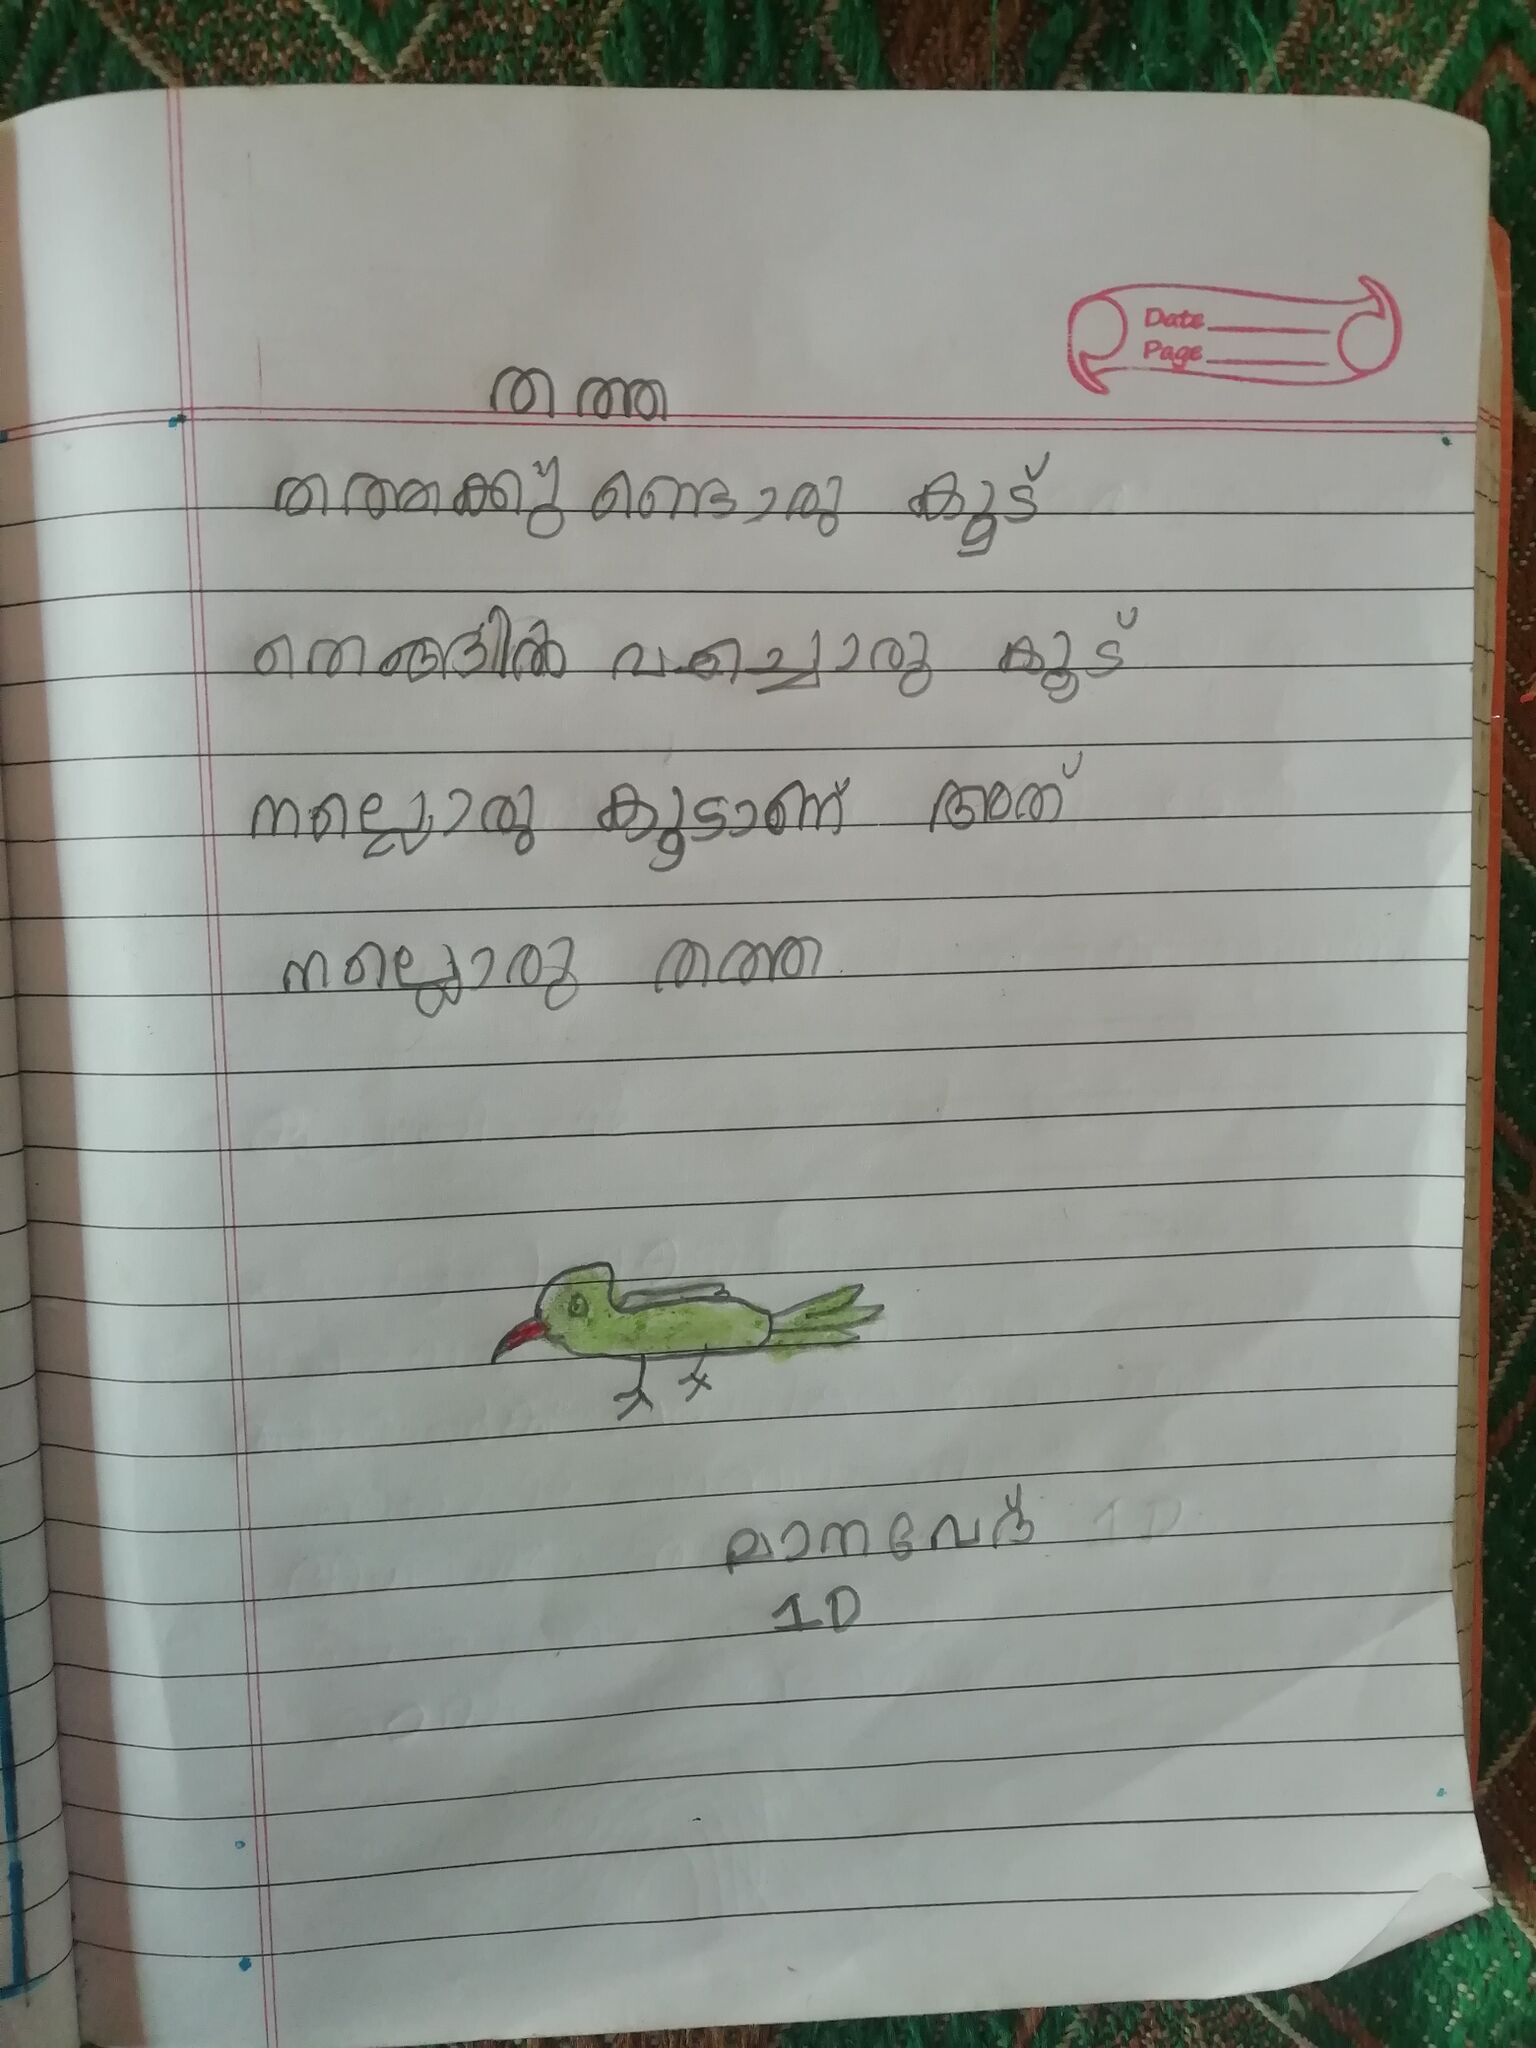 Date
Page
തത്ത
തത്തക്കു ണ്ടൊരു കൂട്
വച്ചൊരു കൂട്
നല്ലൊരു കൂടാണ് അത്
നല്ലൊരു തത്ത
മാനവേദ് 1D
1D